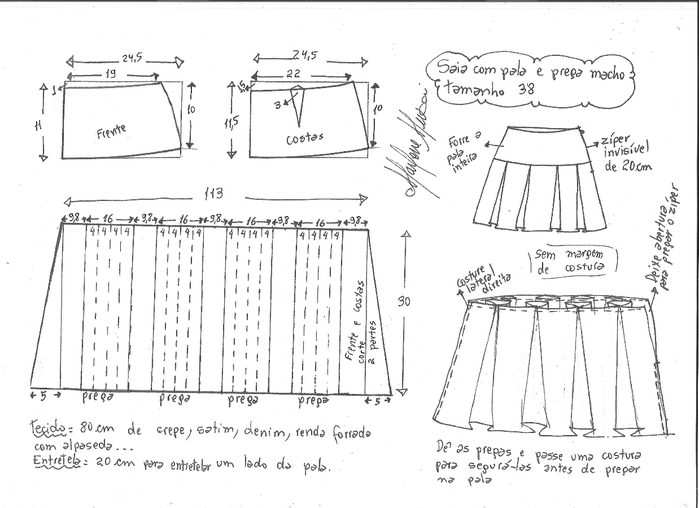 24,5
19
1
11
10
Frente
24,5
22
1,5
3
11,5
10
costas
Saia com pala e prega macho
tamanho 38
Forre a
pala
inteira
zíper
invisível
de 20cm
113
9,8 16 9,8 16 9,8 16 9,8 16 9,8
4 4 4 4 4 4 4 4 4 4 4 4 4 4 4 4
Frente e costas
corte
2 partes
30
5
prega prega prega prega
5
sem margem
de costura
costure
lateral
direita
Deixe abertura
para pregar o zíper
Tecido = 80cm de crepe, satim, denim, renda forrada
com alpaseda...
Entretela = 20cm para entretelar um lado da pala.
Dê as pregas e passe uma costura
para segurá-las antes de pregar
na pala